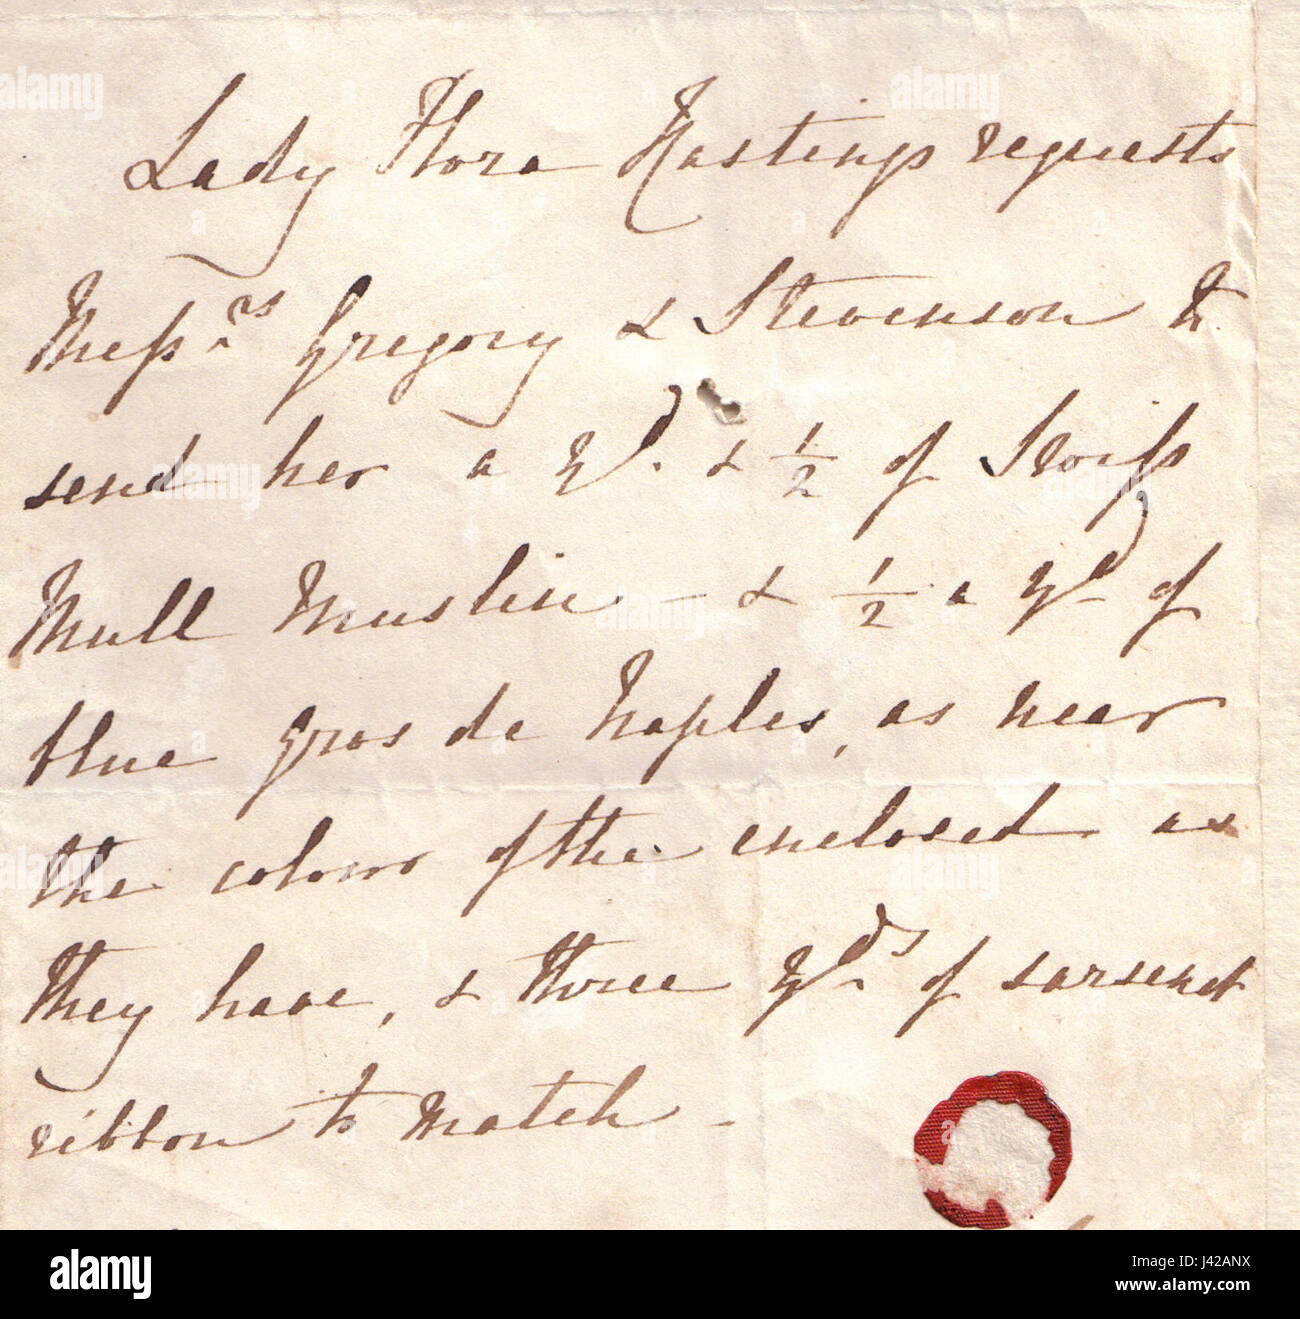 Lady Flora Hastings requests
Messrs Gregory & Stevenson to
send her a yd. & ½ of Swiss
Mull Muslin – & ½ a yd of
blue gros de Naples, as near
the colour of the enclosed as
they have, & three yds of sarsenet
ribbon to match –
alamy
Image ID: J42ANX
www.alamy.com